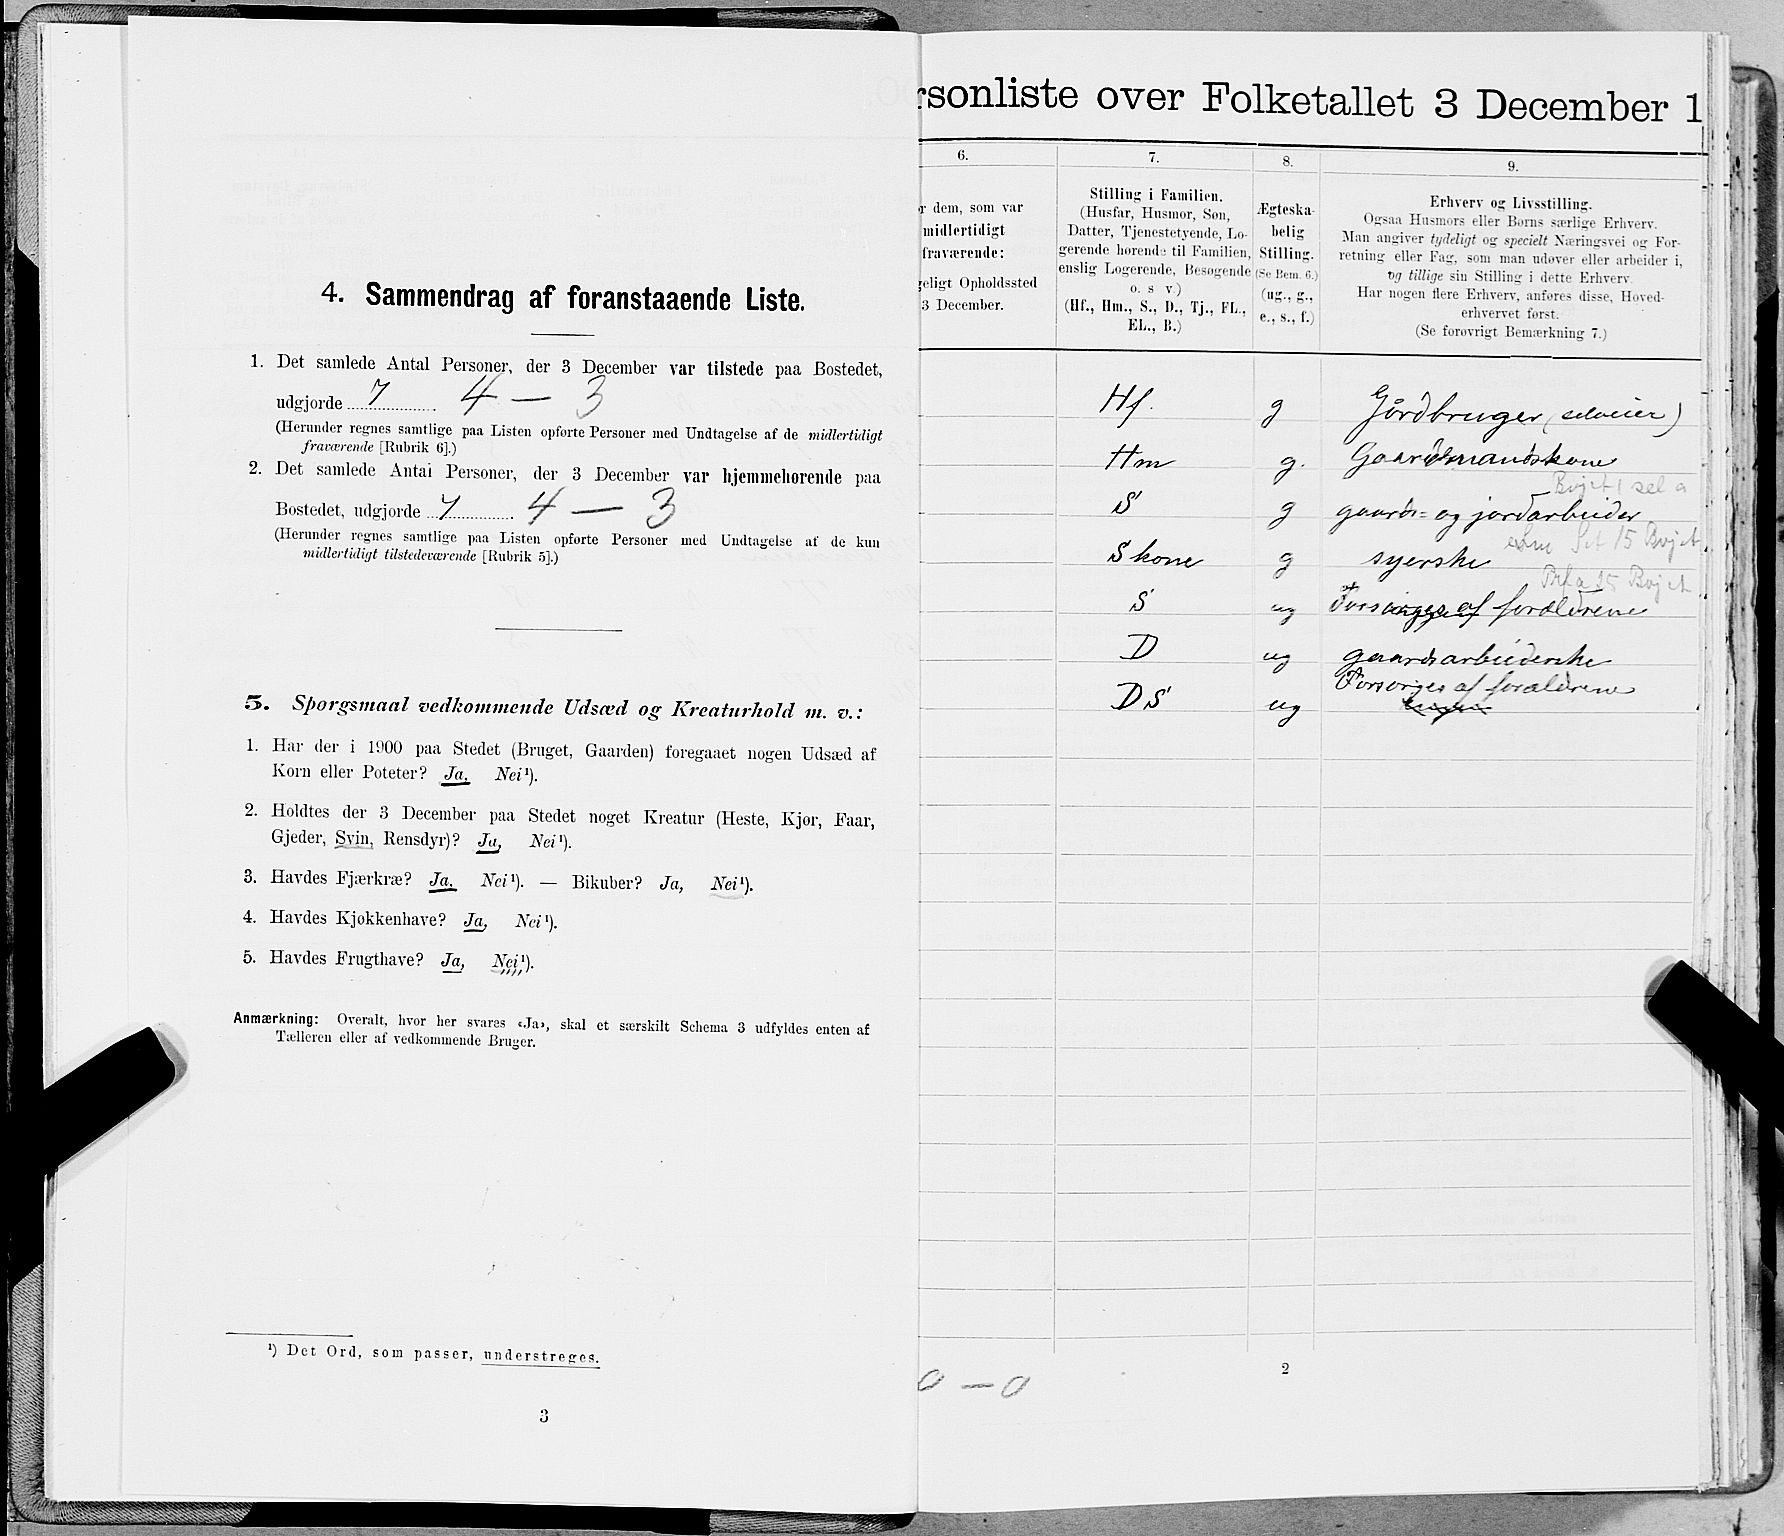 4. Sammendrag af foranstaaende Liste.
1. Det samlede Antal Personer, der 3 December var tilstede paa Bostedet,
udgjorde 7 4 — 3
(Herunder regnes samtlige paa Listen opførte Personer med Undtagelse af de midlertidigt
fraværende [Rubrik 6].)
2. Det samlede Antal Personer, der 3 December var hjemmehørende paa
Bostedet, udgjorde 7 4 — 3
(Herunder regnes samtlige paa Listen opførte Personer med Undtagelse af de kun
midlertidigt tilstedeværende [Rubrik 5].)
5. Spørgsmaal vedkommende Udsæd og Kreaturhold m. v.:
1. Har der i 1900 paa Stedet (Bruget, Gaarden) foregaaet nogen Udsæd af
Korn eller Poteter? Ja, Nei¹).
2. Holdtes der 3 December paa Stedet noget Kreatur (Heste, Kjør, Faar,
Gjeder, Svin, Rensdyr)? Ja, Nei¹).
3. Havdes Fjærkræ? Ja, Nei¹). — Bikuber? Ja, Nei¹).
4. Havdes Kjøkkenhave? Ja, Nei¹).
5. Havdes Frugthave? Ja, Nei¹).
Anmærkning: Overalt, hvor her svares «Ja», skal et særskilt Schema 3 udfyldes enten af
Tælleren eller af vedkommende Bruger.
¹) Det Ord, som passer, understreges.
3
rsonliste over Folketallet 3 December 1
6.
7.
8.
9.
r dem, som var
midlertidigt
fraværende:
geligt Opholdssted
3 December.
Stilling i Familien.
(Husfar, Husmor, Søn,
Datter, Tjenestetyende, Lo-
gerende hørende til Familien,
enslig Logerende, Besøgende
o. s v.)
(Hf., Hm., S., D., Tj., FL.,
EL., B.)
Ægteska-
belig
Stilling.
(Se Bem. 6.)
(ug., g.,
e., s., f.)
Erhverv og Livsstilling.
Ogsaa Husmors eller Børns særlige Erhverv.
Man angiver tydeligt og specielt Næringsvei og For-
retning eller Fag, som man udøver eller arbeider i,
og tillige sin Stilling i dette Erhverv.
Har nogen flere Erhverv, anføres disse, Hoved-
erhvervet først.
(Se forøvrigt Bemærkning 7.)
Hf. g Gårdbruger (selveier)
Hm g. Gaardmandskone
S g gaards= og jordarbeider
S kone g syerske
S ug Forsørges af forældrene
D ug gaardsarbeiderske
D S ug Forsørges af forældrene
0 — 0
2